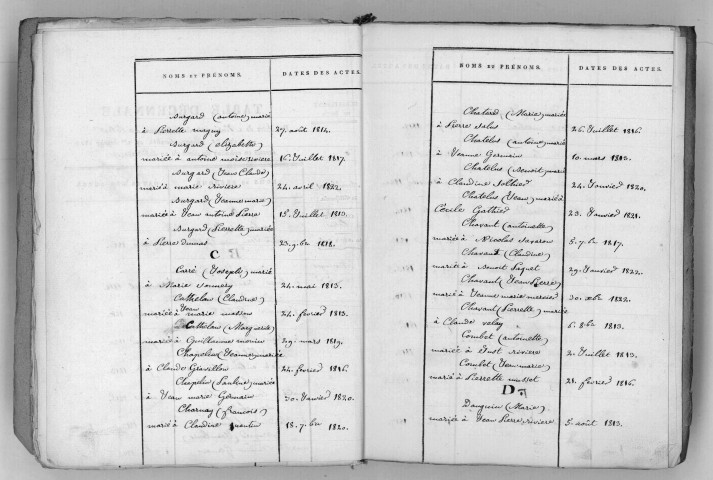 NOMS ET PRÉNOMS. DATES DES ACTES.
Burgard (antoine) marié
à Pierrette 27. août 1814.
Burgard (elizabeth)
mariée à antoine moise riviere 16. Juillet 1817.
Burgard (Jean Claude)
marié à marie riviere 24. avril 1822.
Burgard (Jeanne marie)
mariée à Jean antoine Pierre 15. Juillet 1813.
Burgard (Pierrette) mariée
à Pierre dumas 23. 9.bre 1818.
C
Carré (Joseph) marié
à Marie 24. mai 1813.
Cathelan (Claudine)
mariée à Jean marie masson 24. fevrier 1813.
Cathelan (Marguerite)
mariée à Guillaume monier 29. mars 1819.
Chapelin (Jeanne) mariée
à Claude Gravillon 24. fevrier 1816.
(Pauline) mariée
à Jean marie Germain 20. Janvier 1820.
Charnay (francois)
marié à Claudine 18. 7.bre 1820.
NOMS ET PRÉNOMS. DATES DES ACTES.
Chatard (Marie) mariée
à Pierre 26. Juillet 1816.
Chatelus (antoine) marié
à Jeanne Germain 10. mars 1813.
Chatelus (Benoit) marié
à Claudine 24. Janvier 1820.
Chatelus (Jean) marié à
Cécile 23. Janvier 1821.
Chavant (antoinette)
mariée à Nicolas 5. 7.bre 1817.
Chavant (Claudine)
mariée à Benoit Paquet 29. Janvier 1822.
Chavant (Jean Pierre)
marié à Jeanne marie 30. Xbre 1822.
Chavant (Pierrette) mariée
à Claude velay 6. 8.bre 1813.
Combet (antoinette)
mariée à Just riviere 2. Juillet 1813.
Combet (Jean marie)
marié à Pierrette musset 21. fevrier 1816.
D
Danguin (Marie)
mariée à Jean Pierre riviere 5. août 1813.